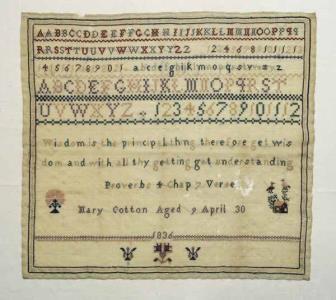 AABBCCDDEEFFGGHHIIJJKKLLMMNNOOPPQQ
RRSSTTUUVVWWXXYYZZ 1 2 4 6 8 10 11 12 13
4 5 6 7 8 9 0 1 a b c d e f g h i k l m o q s v w x z
A B C D E F G H I K L M N O P Q R S T
U V W X Y Z 1 2 3 4 5 6 7 8 9 10 11 12
Wisdom is the principal thing therefore get wis
dom and with all thy getting get understanding
Proverbs 4 Chap 7 Verse
Mary Cotton Aged 9 April 30
1836